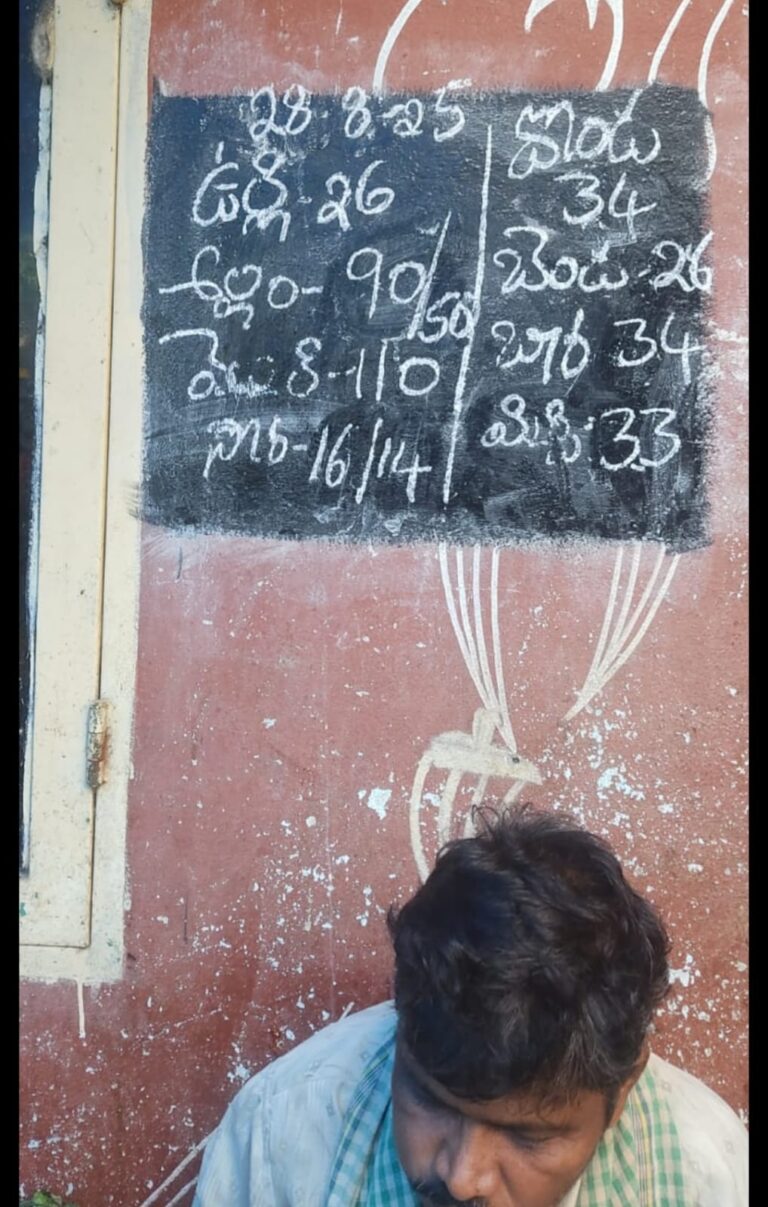 28-8-25
ఉల్లి-26
అల్లం-90/50
వెల్లుల్లి-110
సొర-16/14
దొండ
34
బెండ-26
బీర 34
మిర్చి:33